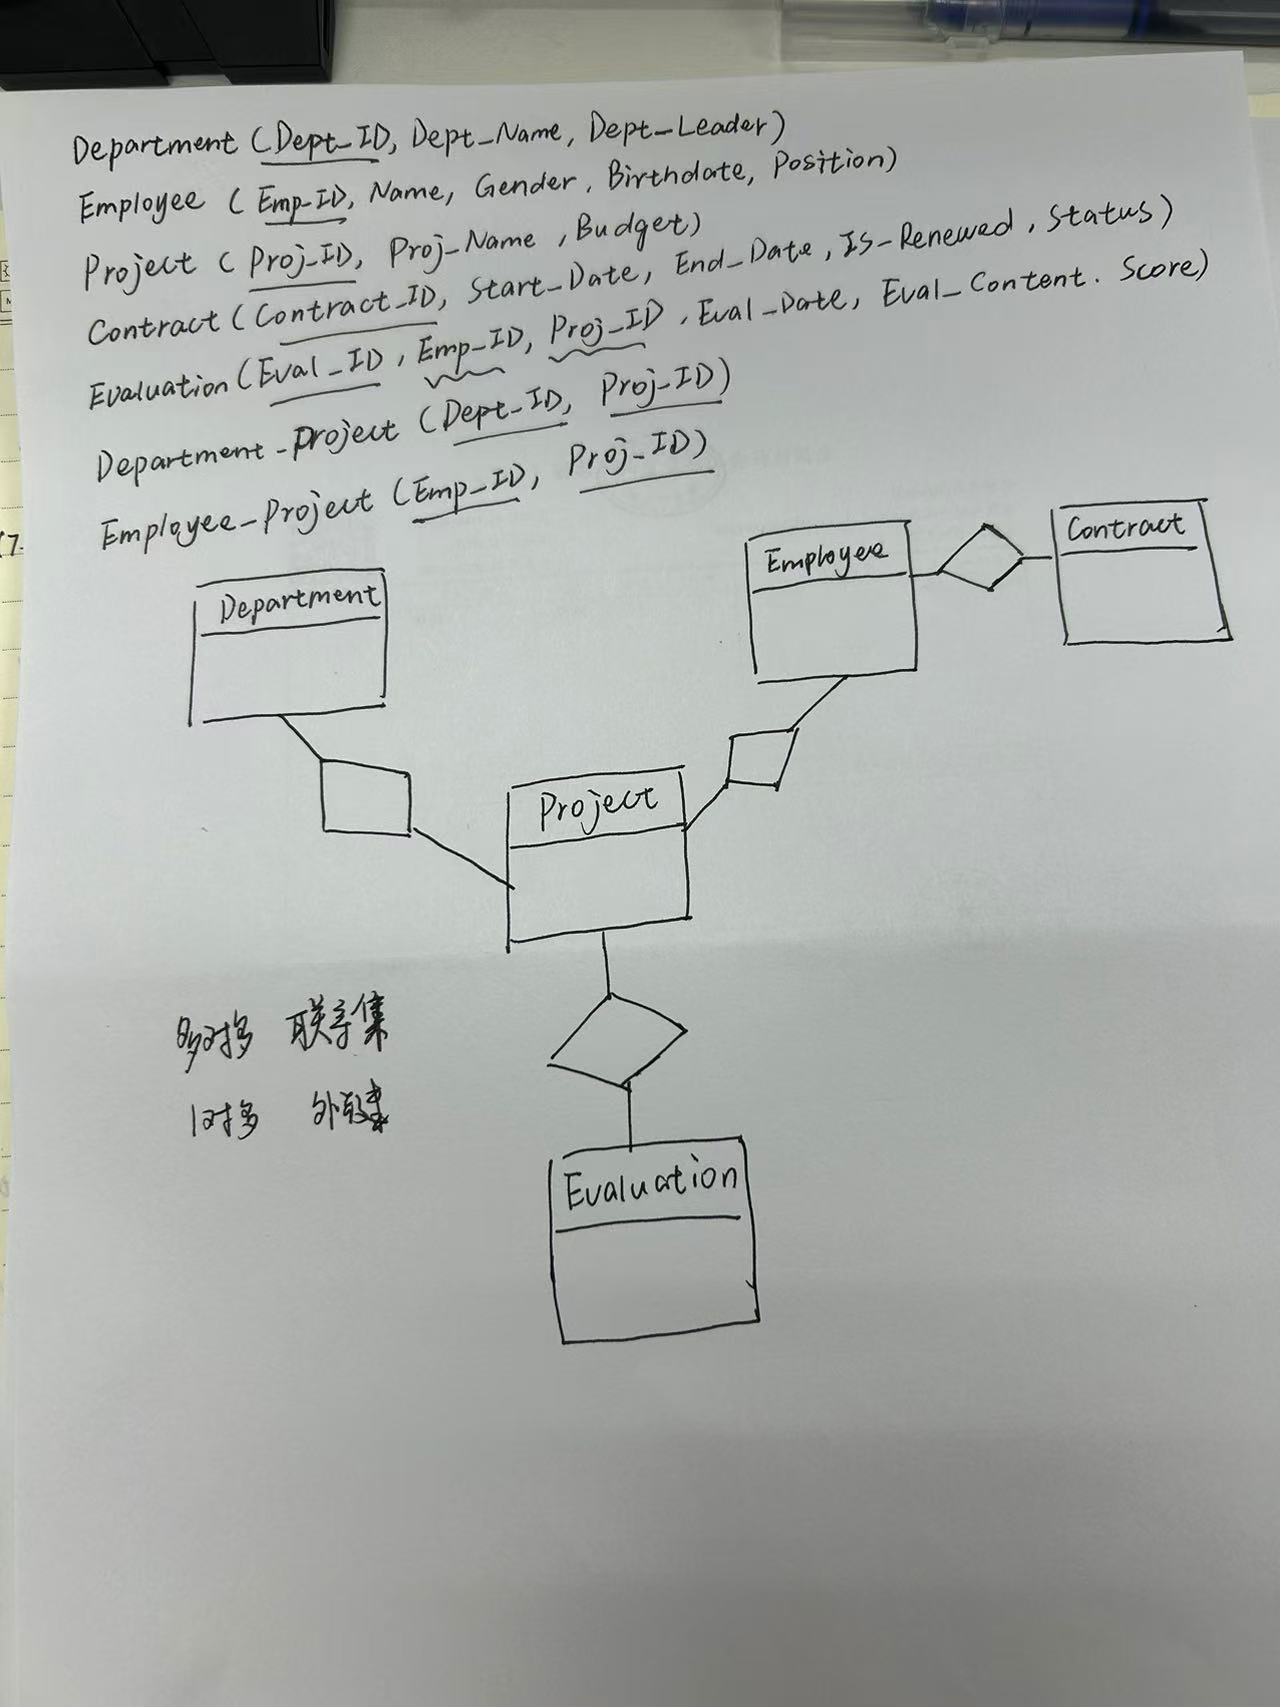 Department (Dept_ID, Dept_Name, Dept_Leader)
Employee (Emp_ID, Name, Gender, Birthdate, Position)
Project (Proj_ID, Proj_Name, Budget)
Contract (Contract_ID, Start_Date, End_Date, Is_Renewed, Status)
Evaluation (Eval_ID, Emp_ID, Proj_ID, Eval_Date, Eval_Content. Score)
Department_Project (Dept_ID, Proj_ID)
Employee_Project (Emp_ID, Proj_ID)
Department
Employee
Contract
Project
多对多 联系集
1对多 外键
Evaluation